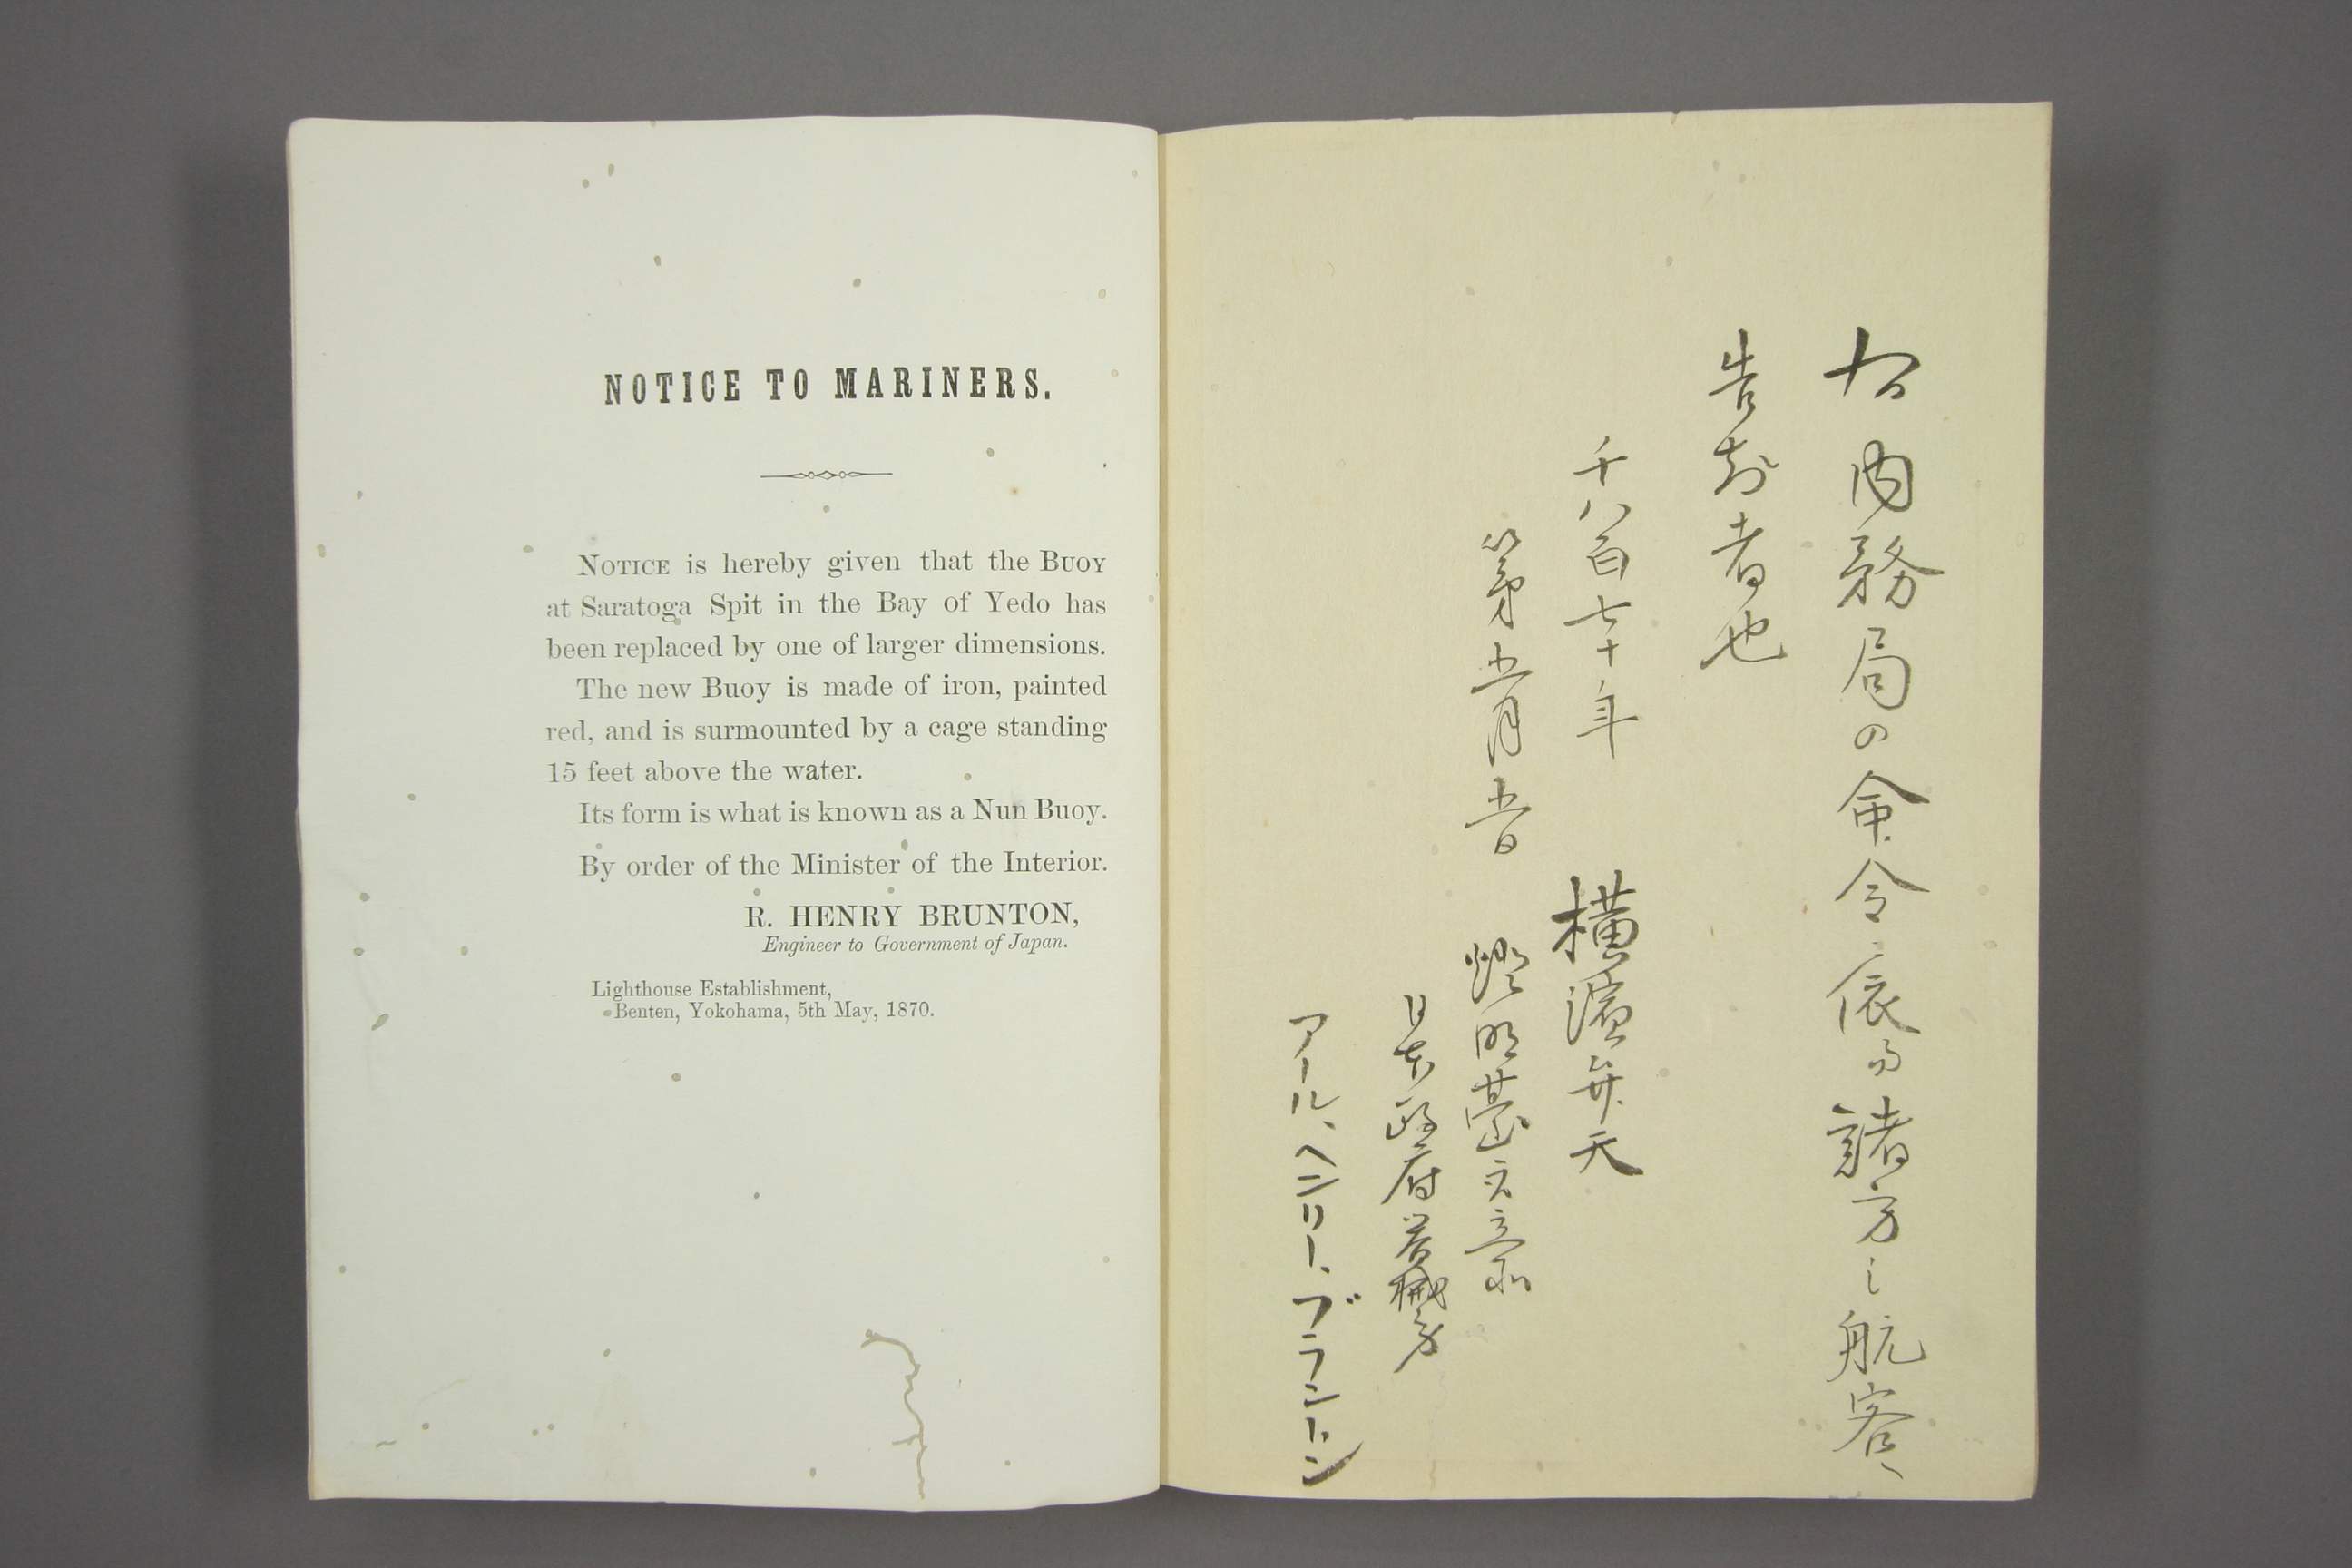 NOTICE TO MARINERS.
NOTICE is hereby given that the BUOY
at Saratoga Spit in the Bay of Yedo has
been replaced by one of larger dimensions.
The new Buoy is made of iron, painted
red, and is surmounted by a cage standing
15 feet above the water.
Its form is what is known as a Nun Buoy.
By order of the Minister of the Interior.
R. HENRY BRUNTON,
Engineer to Government of Japan.
Lighthouse Establishment,
Benten, Yokohama, 5th May, 1870.
右内務局の命令ニ依而諸方之航客ニ
告知者也
千八百七十年
第五月五日
横濱弁天
燈明臺
日本政府器械方
アール、ヘンリー、ブラントン